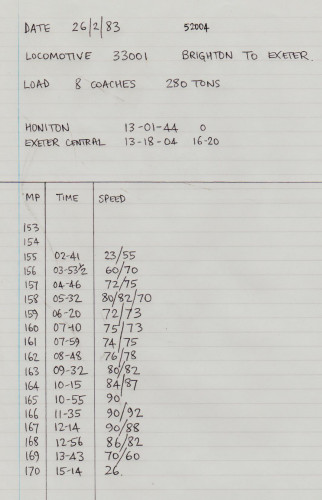 DATE 26/2/83 52004
LOCOMOTIVE 33001 BRIGHTON TO EXETER.
LOAD 8 COACHES 280 TONS
HONITON 13-01-44 0
EXETER CENTRAL 13-18-04 16-20
MP TIME SPEED
153
154
155 02-41 23/55
156 03-53½ 60/70
157 04-46 72/75
158 05-32 80/82/70
159 06-20 72/73
160 07-10 75/73
161 07-59 74/75
162 08-48 76/78
163 09-32 80/82
164 10-15 84/87
165 10-55 90
166 11-35 90/92
167 12-14 90/88
168 12-56 86/82
169 13-43 70/60
170 15-14 26.